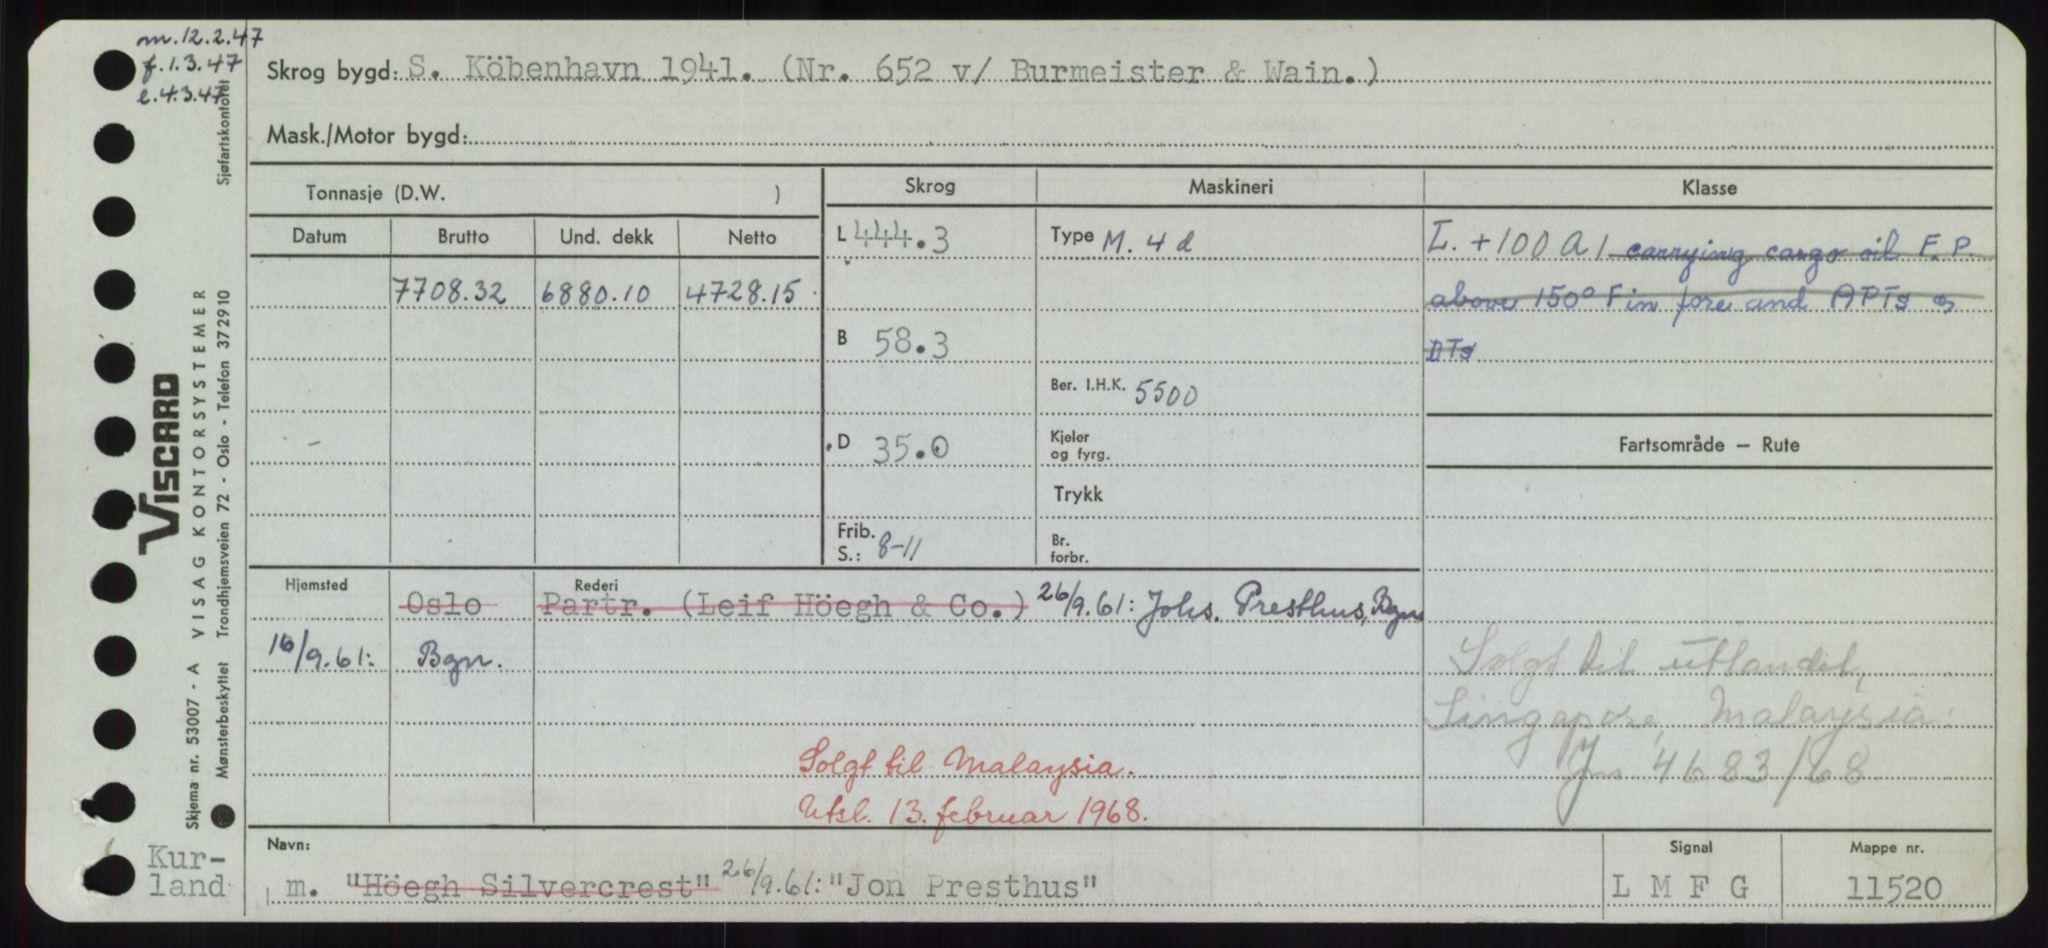 m.12.2.47
f.1.3.47
e.4.3.47
Sjøfartskontoret
Skrog bygd: S. Köbenhavn 1941. (Nr. 652 v/ Burmeister & Wain.)
Mask./Motor bygd:
Tonnasje (D.W. )
Skrog
Maskineri
Klasse
Datum Brutto Und. dekk Netto
7708.32 6880.10 4728.15
L 444.3
B 58.3
D 35.0
Frib. S.: 8-11
Type M. 4 d
Ber. I.H.K. 5500
Kjeler og fyrg.
Trykk
Br. forbr.
L. +100 A 1 carrying cargo oil F. P.
above 150° F in fore and APTs &
DTs
Fartsområde — Rute
Hjemsted Rederi
Oslo Partr. (Leif Höegh & Co.) 26/9.61: Johs. Presthus, Bgn
16/9.61: Bgn.
Solgt til utlandet,
Singapore, Malaysia.
Jnr. 4683/68
Solgt til Malaysia.
Utsl. 13. februar 1968.
Kur-
land
Navn:
m. "Höegh Silvercrest" 26/9.61: "Jon Presthus"
Signal
L M F G
Mappe nr.
11520
VISCARD
VISAG KONTORSYSTEMER
Skjema nr. 53007 - A
Mønsterbeskyttet Trondhjemsveien 72 - Oslo - Telefon 372910